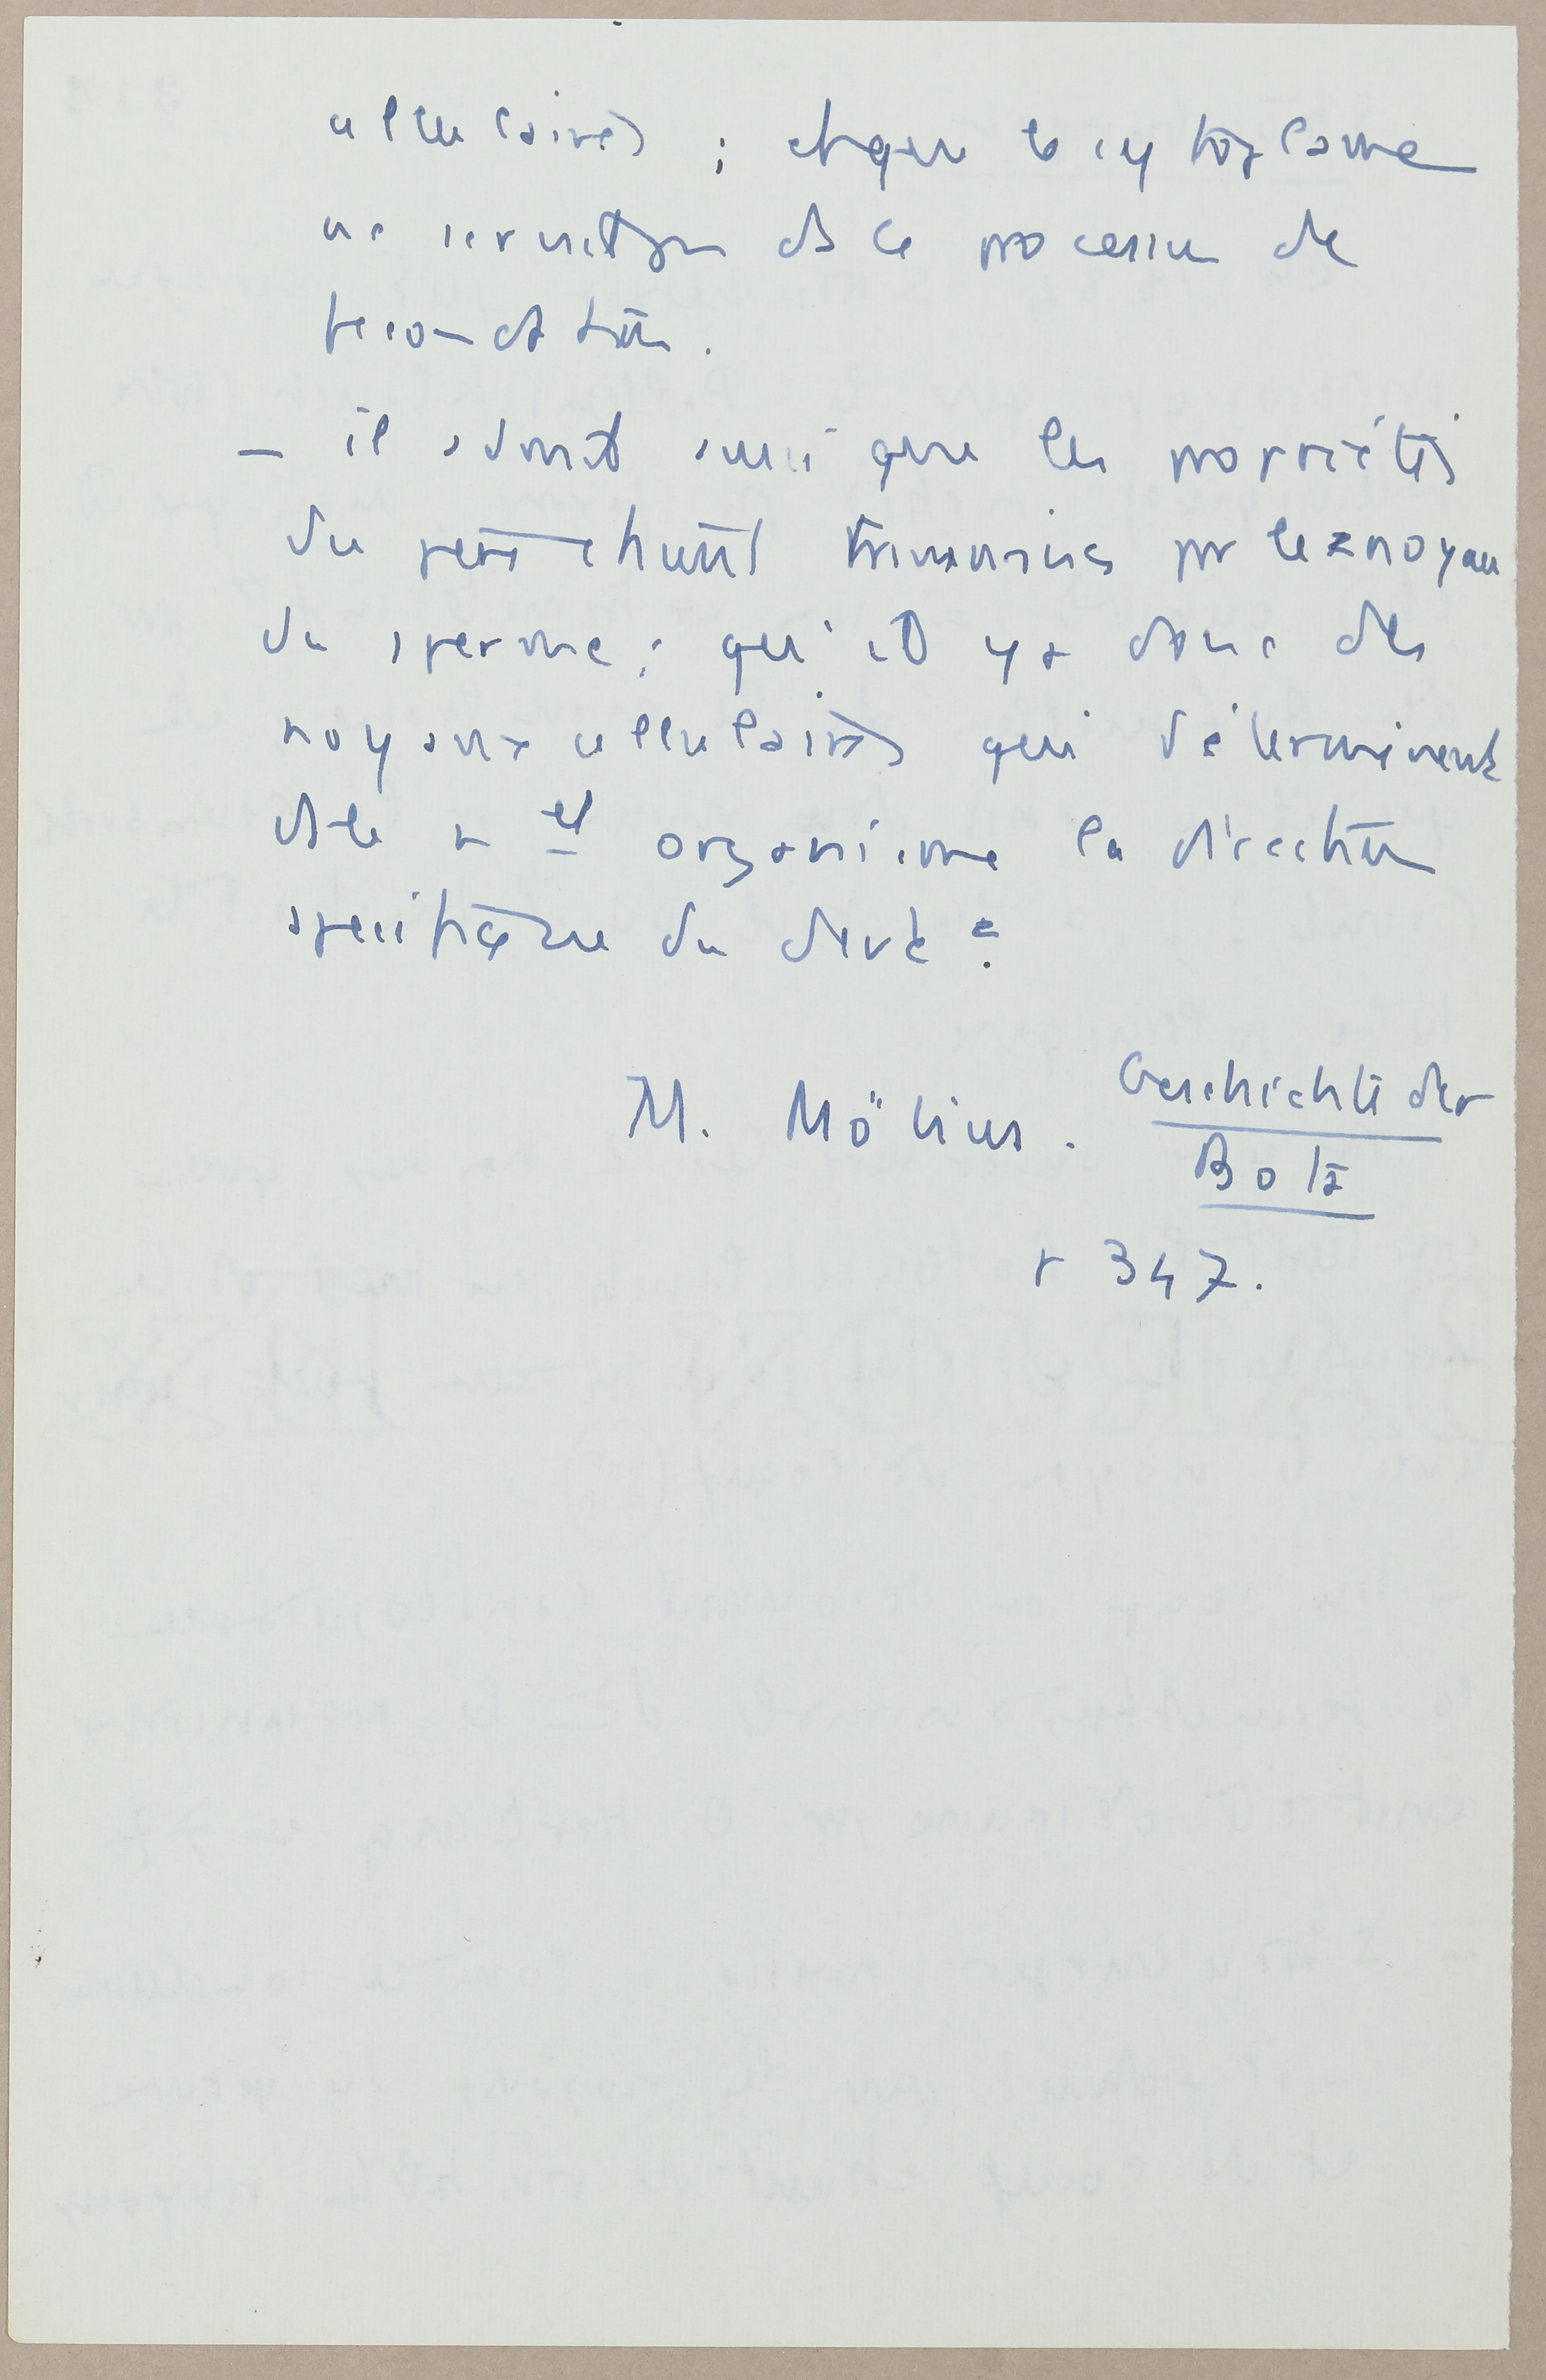 cellulaires ; et que le cytoplasme
ne servait pas ds ce processus de
fecondation.
— il admit aussi que les propriétés
du père étaient transmises par le noyau
du sperme ; qu'il y a donc des
noyaux cellulaires qui déterminent
ds le n el organisme la direction
spécifique du devt.
M. Möbius. Geschichte der
Bot
p 347.